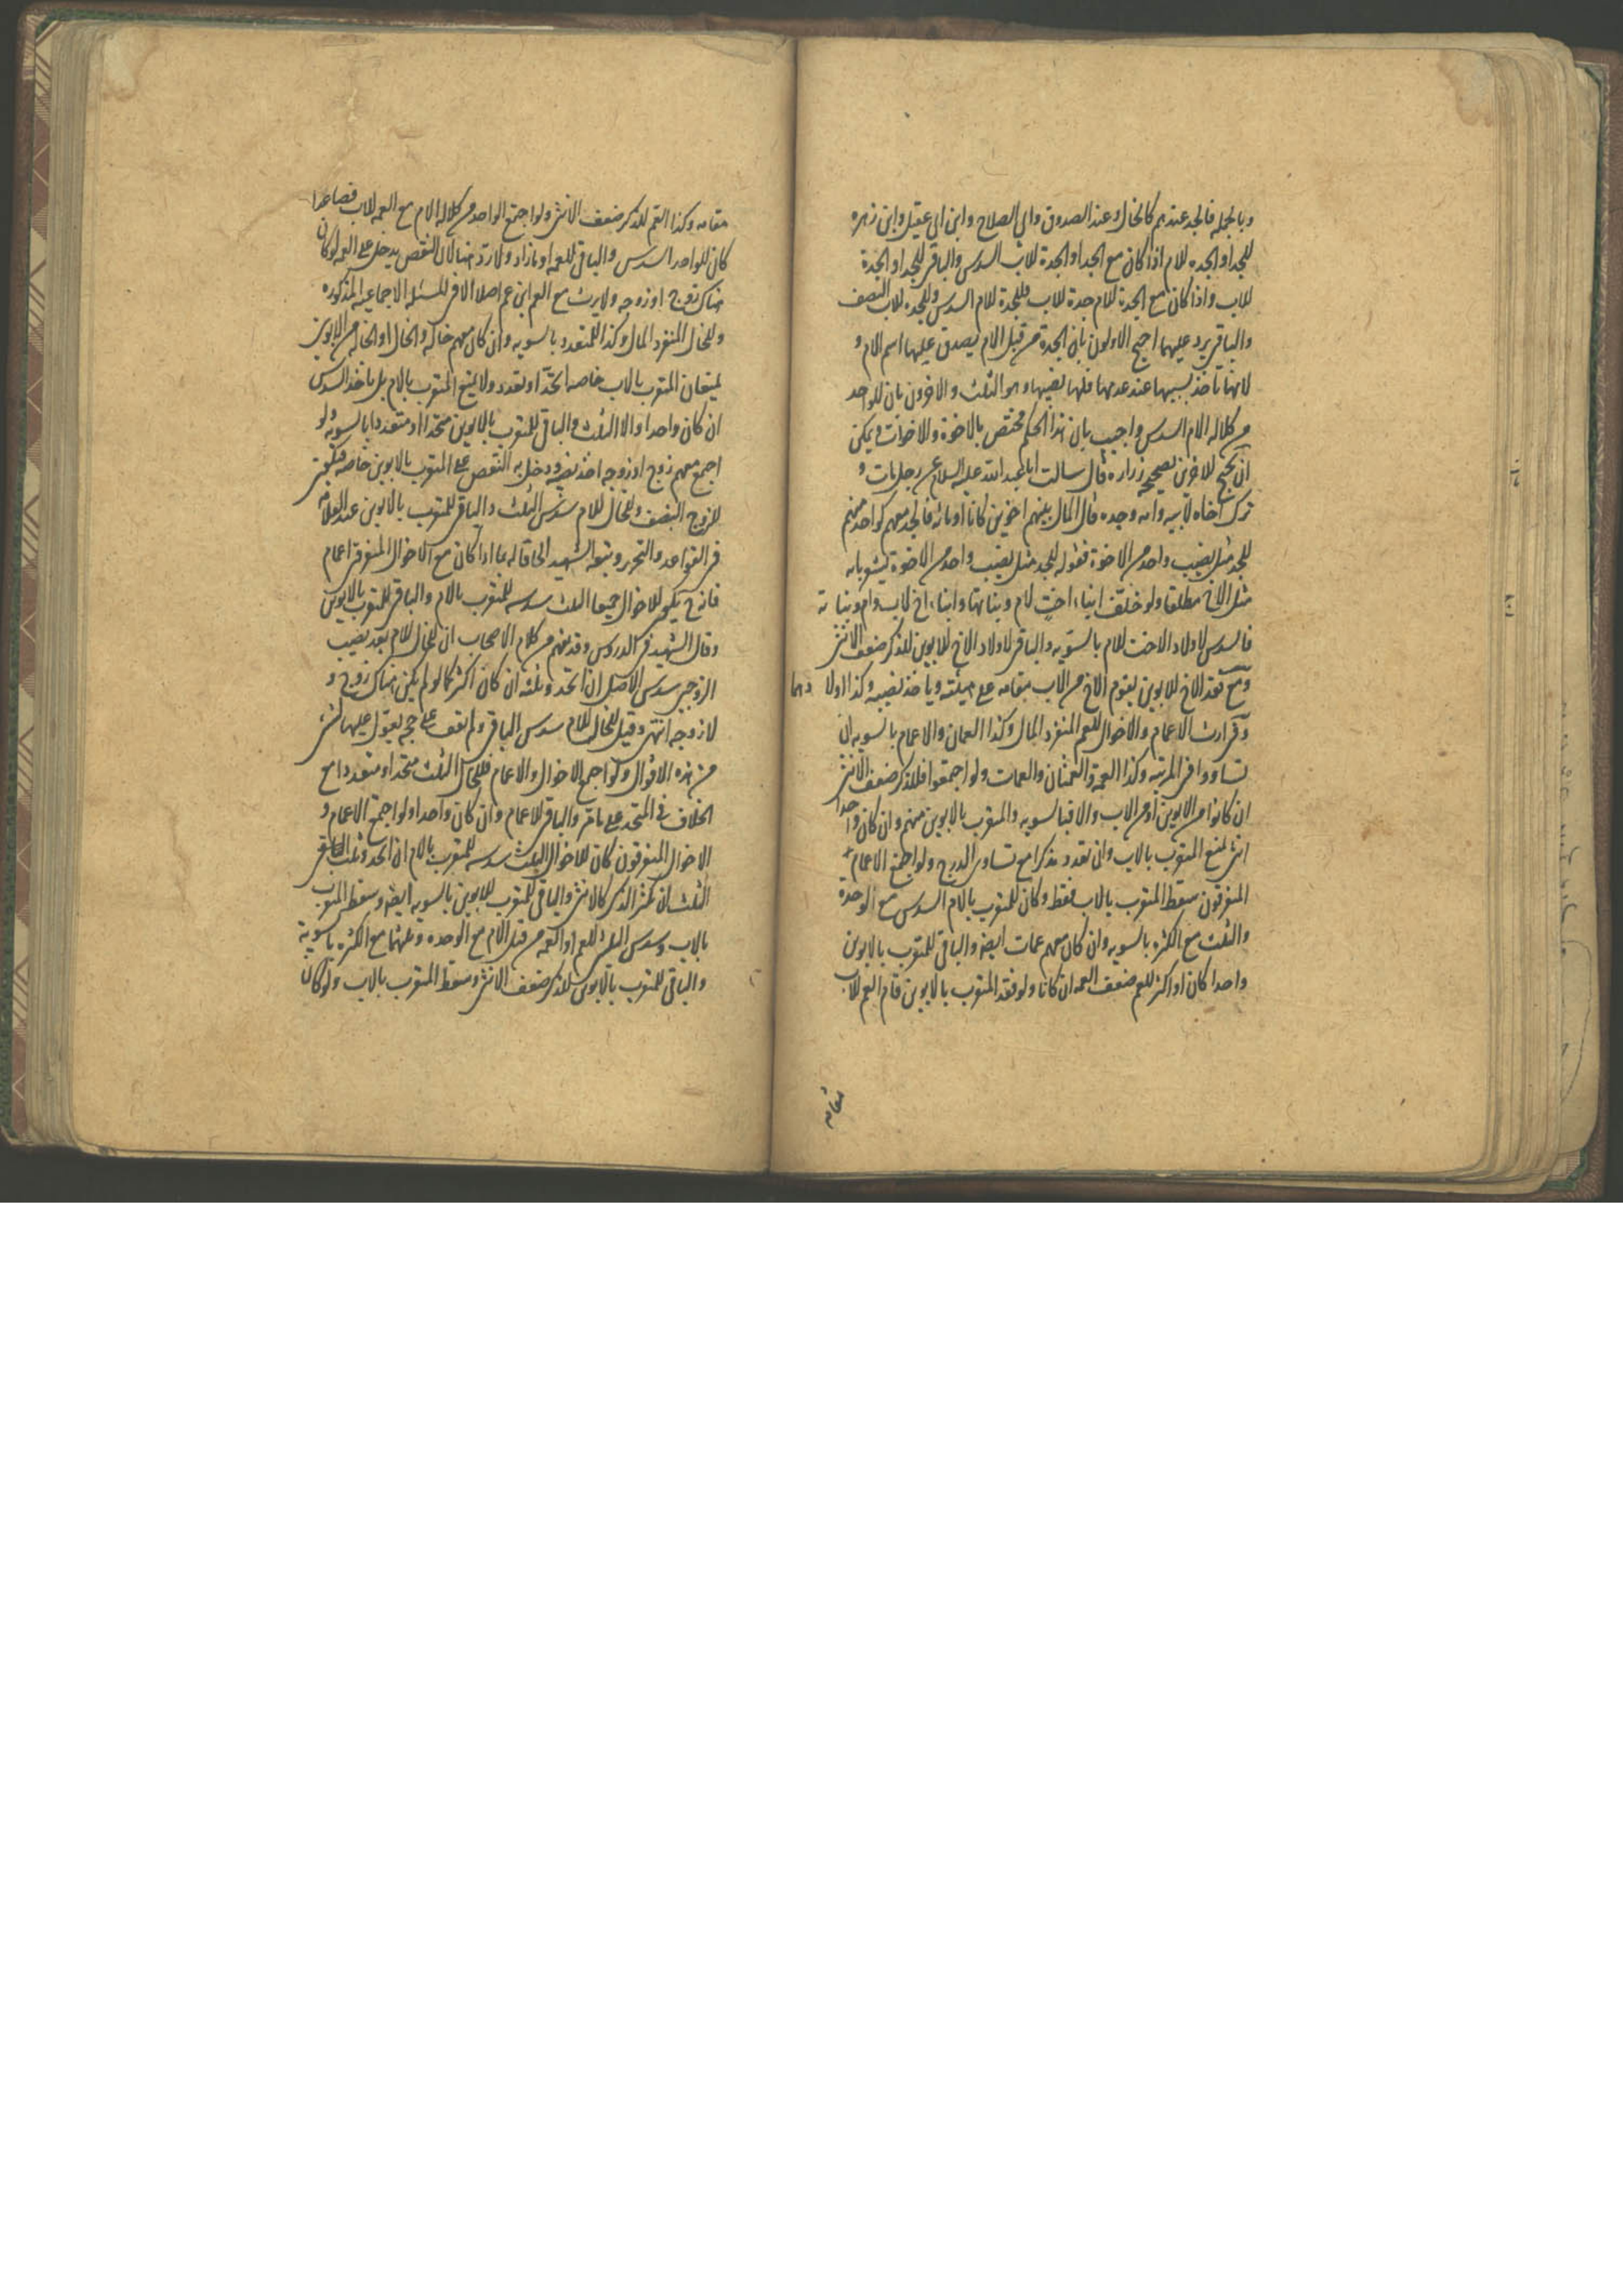 وبالجمله فالجد عندهم كالخال وعند الصدوق وابي الصلاح وابن ابي عقيل وابن زهره
للجد او الجده للام اذا كان مع الجد او الجدة للاب السدس والباقى للجد او الجدة
للاب واذا كان مع الجدة للام جدة للاب فللجدة للام السدس وللجده للاب النصف
والباقى يرد عليهما احتج الاولون بان الجدة من قبل الام يصدق عليها اسم الام و
لانها تاخذ بسببها عند عدمها فلها نصيبها وهو الثلث والاخرون بان للواحد
من كلاله الام السدس واجيب بان هذا الحكم مختص بالاخوة والاخوات ويمكن
ان يحتج للاخرين بصحيحة زراره قال سالت ابا عبد الله عليه السلام عن رجل مات و
ترك اخاه لابيه وامه وجده قال المال بينهم اخوين كانا او مائه فالجد معهم كواحد منهم
للجد مثل نصيب واحد من الاخوة فقوله للجد مثل نصيب واحد من الاخوة
مثل الاخ مطلقا ولو خلف ابناء اخت لام وبناتها وابناء اخ لاب وام وبناته
فالسدس لاولاد الاخت للام بالسويه والباقى لاولاد الاخ للابوين للذكر ضعف الانثى
ومع فقد الاخ للابوين يقوم الاخ من الاب مقامه على هيئته وياخذ نصيبه وكذا اولادهما
وفى ارث الاعمام والاخوال للعم المنفرد المال وكذا العمان والاعمام بالسويه ان
تساووا فى المرتبه وكذا العمة والعمتان والعمات ولو اجتمعوا فللذكر ضعف الانثى
ان كانوا من الابوين او من الاب والا فبالسويه والمتقرب بالابوين منهم وان كان واحدا
انثى لمنع المتقرب بالاب وان تعدد مذكرا مع تساوى الدرج ولو اجتمع الاعمام
المتفرقون سقط المتقرب بالاب فقط وكان للمتقرب بالام السدس مع الوحدة
والثلث مع الكثره بالسويه وان كان معهم عمات ايضا والباقى للمتقرب بالابوين
واحدا كان او اكثر للعم ضعف العمه ان كانا ولو فقد المتقرب بالابوين قام العم للاب
مقامه
مقامه وكذا العم للذكر ضعف الانثى ولو اجتمع الواحد من كلاله الام مع العمه للاب فصاعدا
كان للواحد السدس والباقى للعمه او مازاد ولا رد هنا لان النقص يدخل على العمه لو كان
هناك زوج او زوجه ولا يرث مع العم ابن عم اصلا الا فى المسئله الاجماعيه المذكوره
وللخال المنفرد المال وكذا للمتعدد بالسويه وان كان معهم خاله والخال او الخاله من الابوين
يمنعان المتقرب بالاب خاصه اتحد او تعدد ولا يمنع المتقرب بالام بل ياخذ السدس
ان كان واحدا والا الثلث والباقى للمتقرب بالابوين متحدا او متعددا بالسويه ولو
اجتمع معهم زوج او زوجه اخذ نصيبه ودخل به النقص على المتقرب بالابوين خاصه
للزوج النصف وللخال للام سدس الثلث والباقى للمتقرب بالابوين عند العلامه
فى القواعد والتحرير وتبعه الشهيد الحاقا له بما اذا كان مع الاخوال المتفرقه اعمام
فانه ح يكون للاخوال جميعا الثلث سدسه للمتقرب بالام والباقى للمتقرب بالابوين
وقال الشهيد فى الدروس وقد يفهم من كلام الاصحاب ان للخال للام بعد نصيب
الزوجيه سدس الاصل ان اتحد وثلثه ان كان اكثر كما لو لم يكن هناك زوج و
لا زوجه انتهى وقيل للخال للام سدس الباقى ولم اقف على حجه يعول عليها لشىء
من هذه الاقوال ولو اجتمع الاخوال والاعمام فللخال الثلث متحدا او متعددا مع
الخلاف فى المتحد على ما مر والباقى للاعمام وان كان واحدا ولو اجتمع الاعمام و
الاخوال المتفرقون كان للاخوال الثلث سدسه للمتقرب بالام ان اتحد وثلث
الثلث ان كثر الذكر كالانثى والباقى للمتقرب للابوين بالسويه ايضا وسقط المتقرب
بالاب وسدس الثلثين للعم او العمه من قبل الام مع الوحده وثلثهما مع الكثره بالسوية
والباقى للمتقرب بالابوين للذكر ضعف الانثى وسقط المتقرب بالاب ولو كان